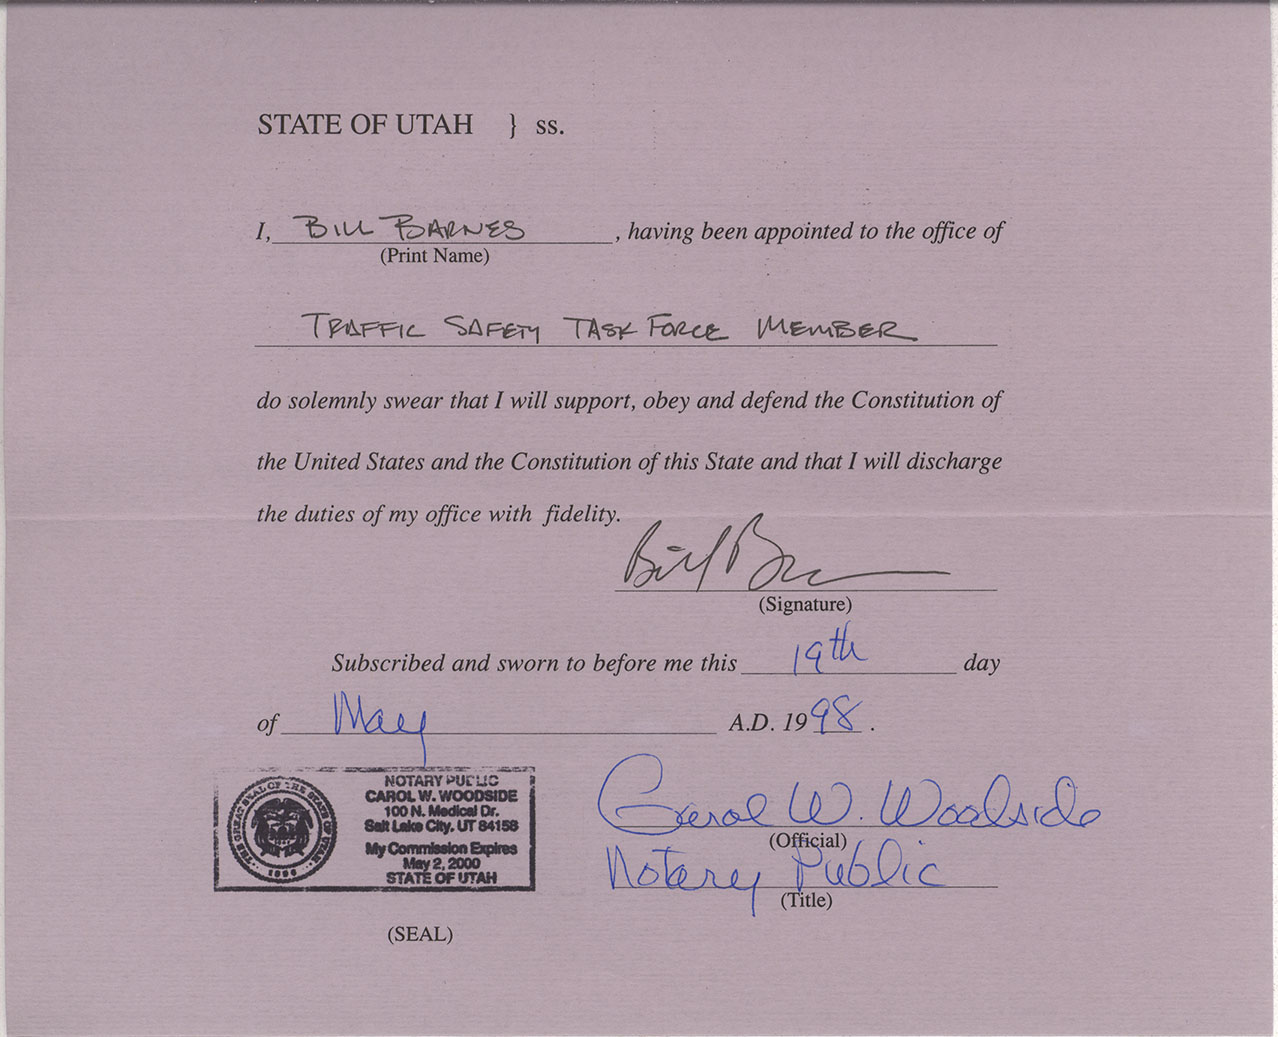 STATE OF UTAH } ss.
I, BILL BARNES, having been appointed to the office of
(Print Name)
TRAFFIC SAFETY TASK FORCE MEMBER
do solemnly swear that I will support, obey and defend the Constitution of
the United States and the Constitution of this State and that I will discharge
the duties of my office with fidelity.
Bill Barnes
(Signature)
Subscribed and sworn to before me this 19th day
of May A.D. 1998.
NOTARY PUBLIC
CAROL W. WOODSIDE
100 N. Medical Dr.
Salt Lake City, UT 84158
My Commission Expires
May 2, 2000
STATE OF UTAH
THE GREAT SEAL OF THE STATE OF UTAH
1896
(SEAL)
Carol W. Woodside
(Official)
Notary Public
(Title)